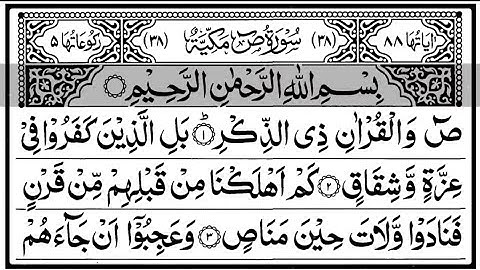 اٰیَاتُهَا ۸۸ (۳۸) سُوْرَةُ صٓ مَكِّیَّةٌ (۳۸) رُكُوْعَاتُهَا ۵
بِسْمِ اللّٰهِ الرَّحْمٰنِ الرَّحِیْمِ
صٓ وَالْقُرْاٰنِ ذِی الذِّكْرِ ؕ﴿۱﴾ بَلِ الَّذِیْنَ كَفَرُوْا فِیْ
عِزَّةٍ وَّشِقَاقٍ ﴿۲﴾ كَمْ اَهْلَكْنَا مِنْ قَبْلِهِمْ مِّنْ قَرْنٍ
فَنَادَوْا وَّلَاتَ حِیْنَ مَنَاصٍ ﴿۳﴾ وَعَجِبُوْۤا اَنْ جَآءَهُمْ